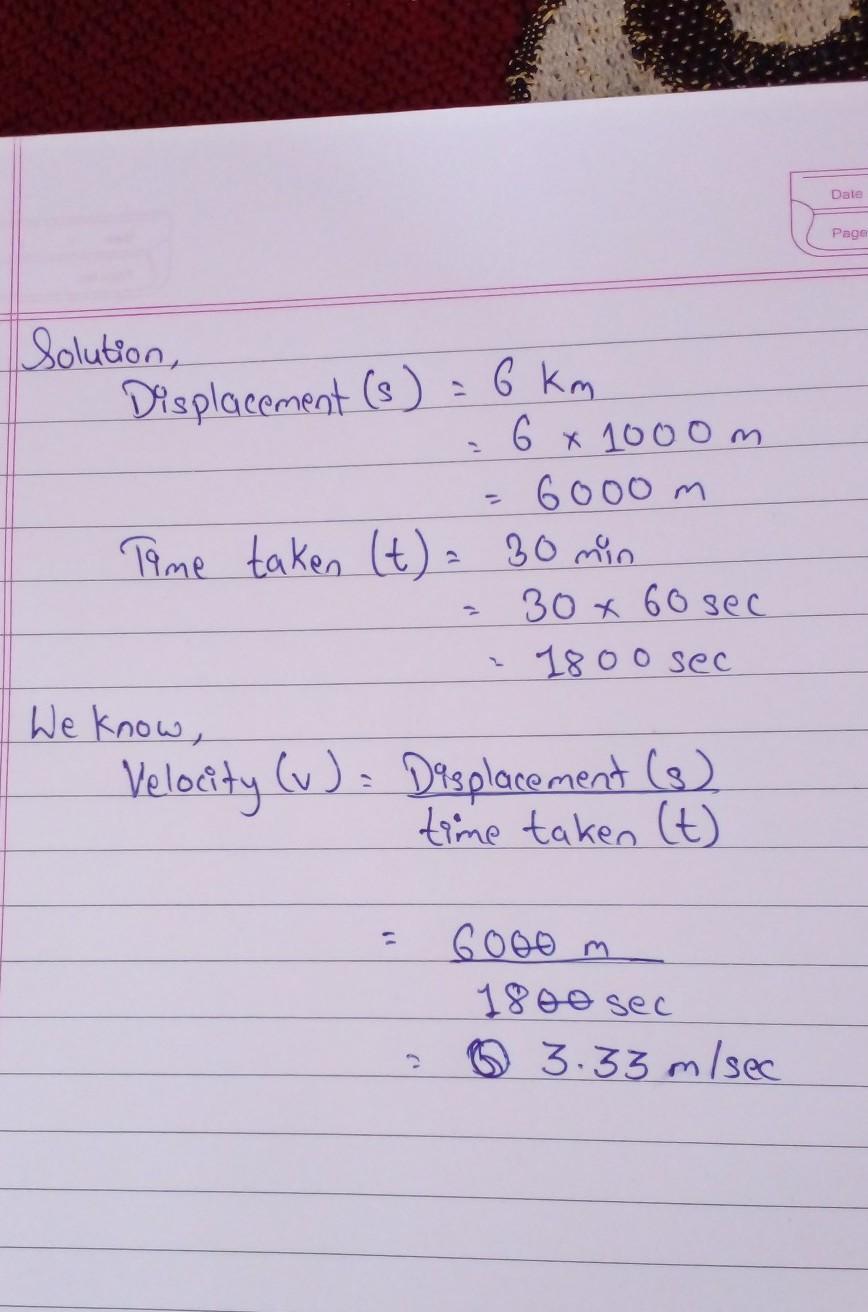 Date
Page
Solution,
Displacement (s) = 6 Km
= 6 x 1000 m
= 6000 m
Time taken (t) = 30 min
= 30 x 60 sec
= 1800 sec
We know,
Velocity (v) = Displacement (s)
time taken (t)
= 6000 m
1800 sec
= 3.33 m/sec